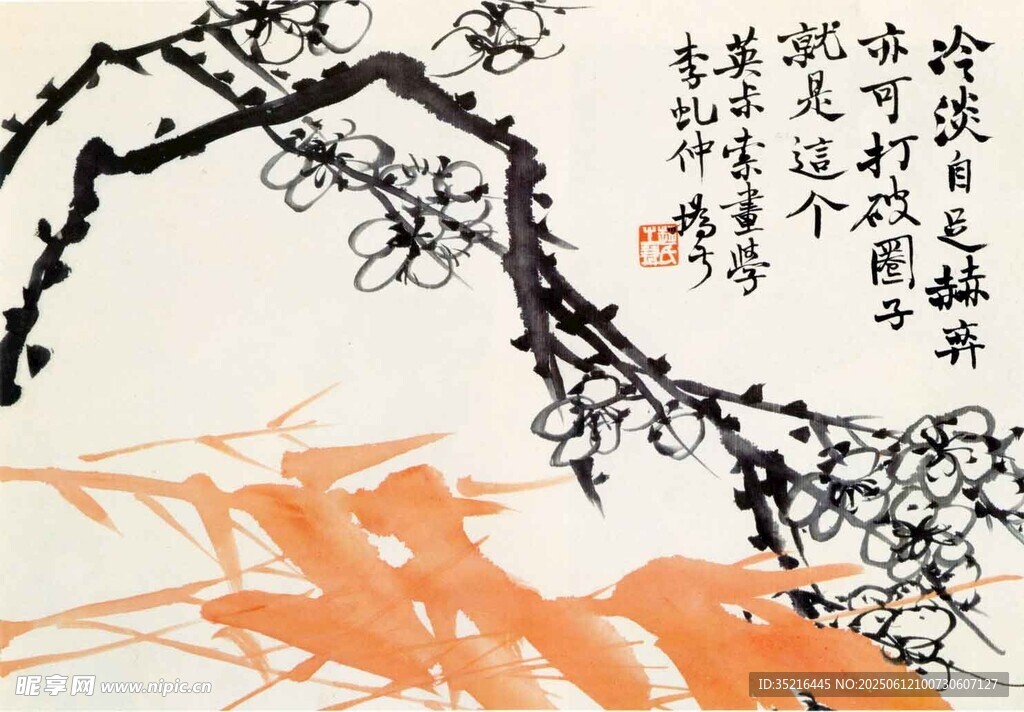 冷淡自足赫弈
亦可打破圈子
就是這个
英赤索畫學
李虬仲撝叔
趙氏
昵享网 www.nipic.cn
ID:35216445 NO:20250612100730607127